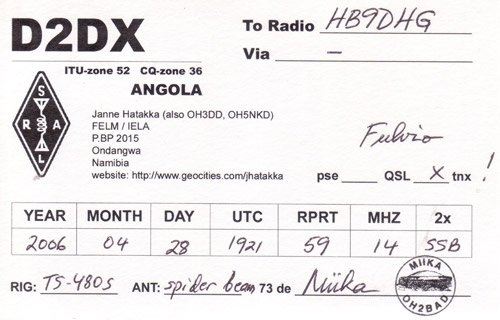 D2DX
To Radio HB9DHG
Via –
ITU-zone 52 CQ-zone 36
ANGOLA
S
R A
L
Janne Hatakka (also OH3DD, OH5NKD)
FELM / IELA
P.BP 2015
Ondangwa
Namibia
website: http://www.geocities.com/jhatakka
Fulvio
pse ____ QSL X tnx !
YEAR MONTH DAY UTC RPRT MHZ 2x
2006 04 28 1921 59 14 SSB
RIG: TS-480S ANT: spider beam 73 de Miika
MIIKA
OH2BAD